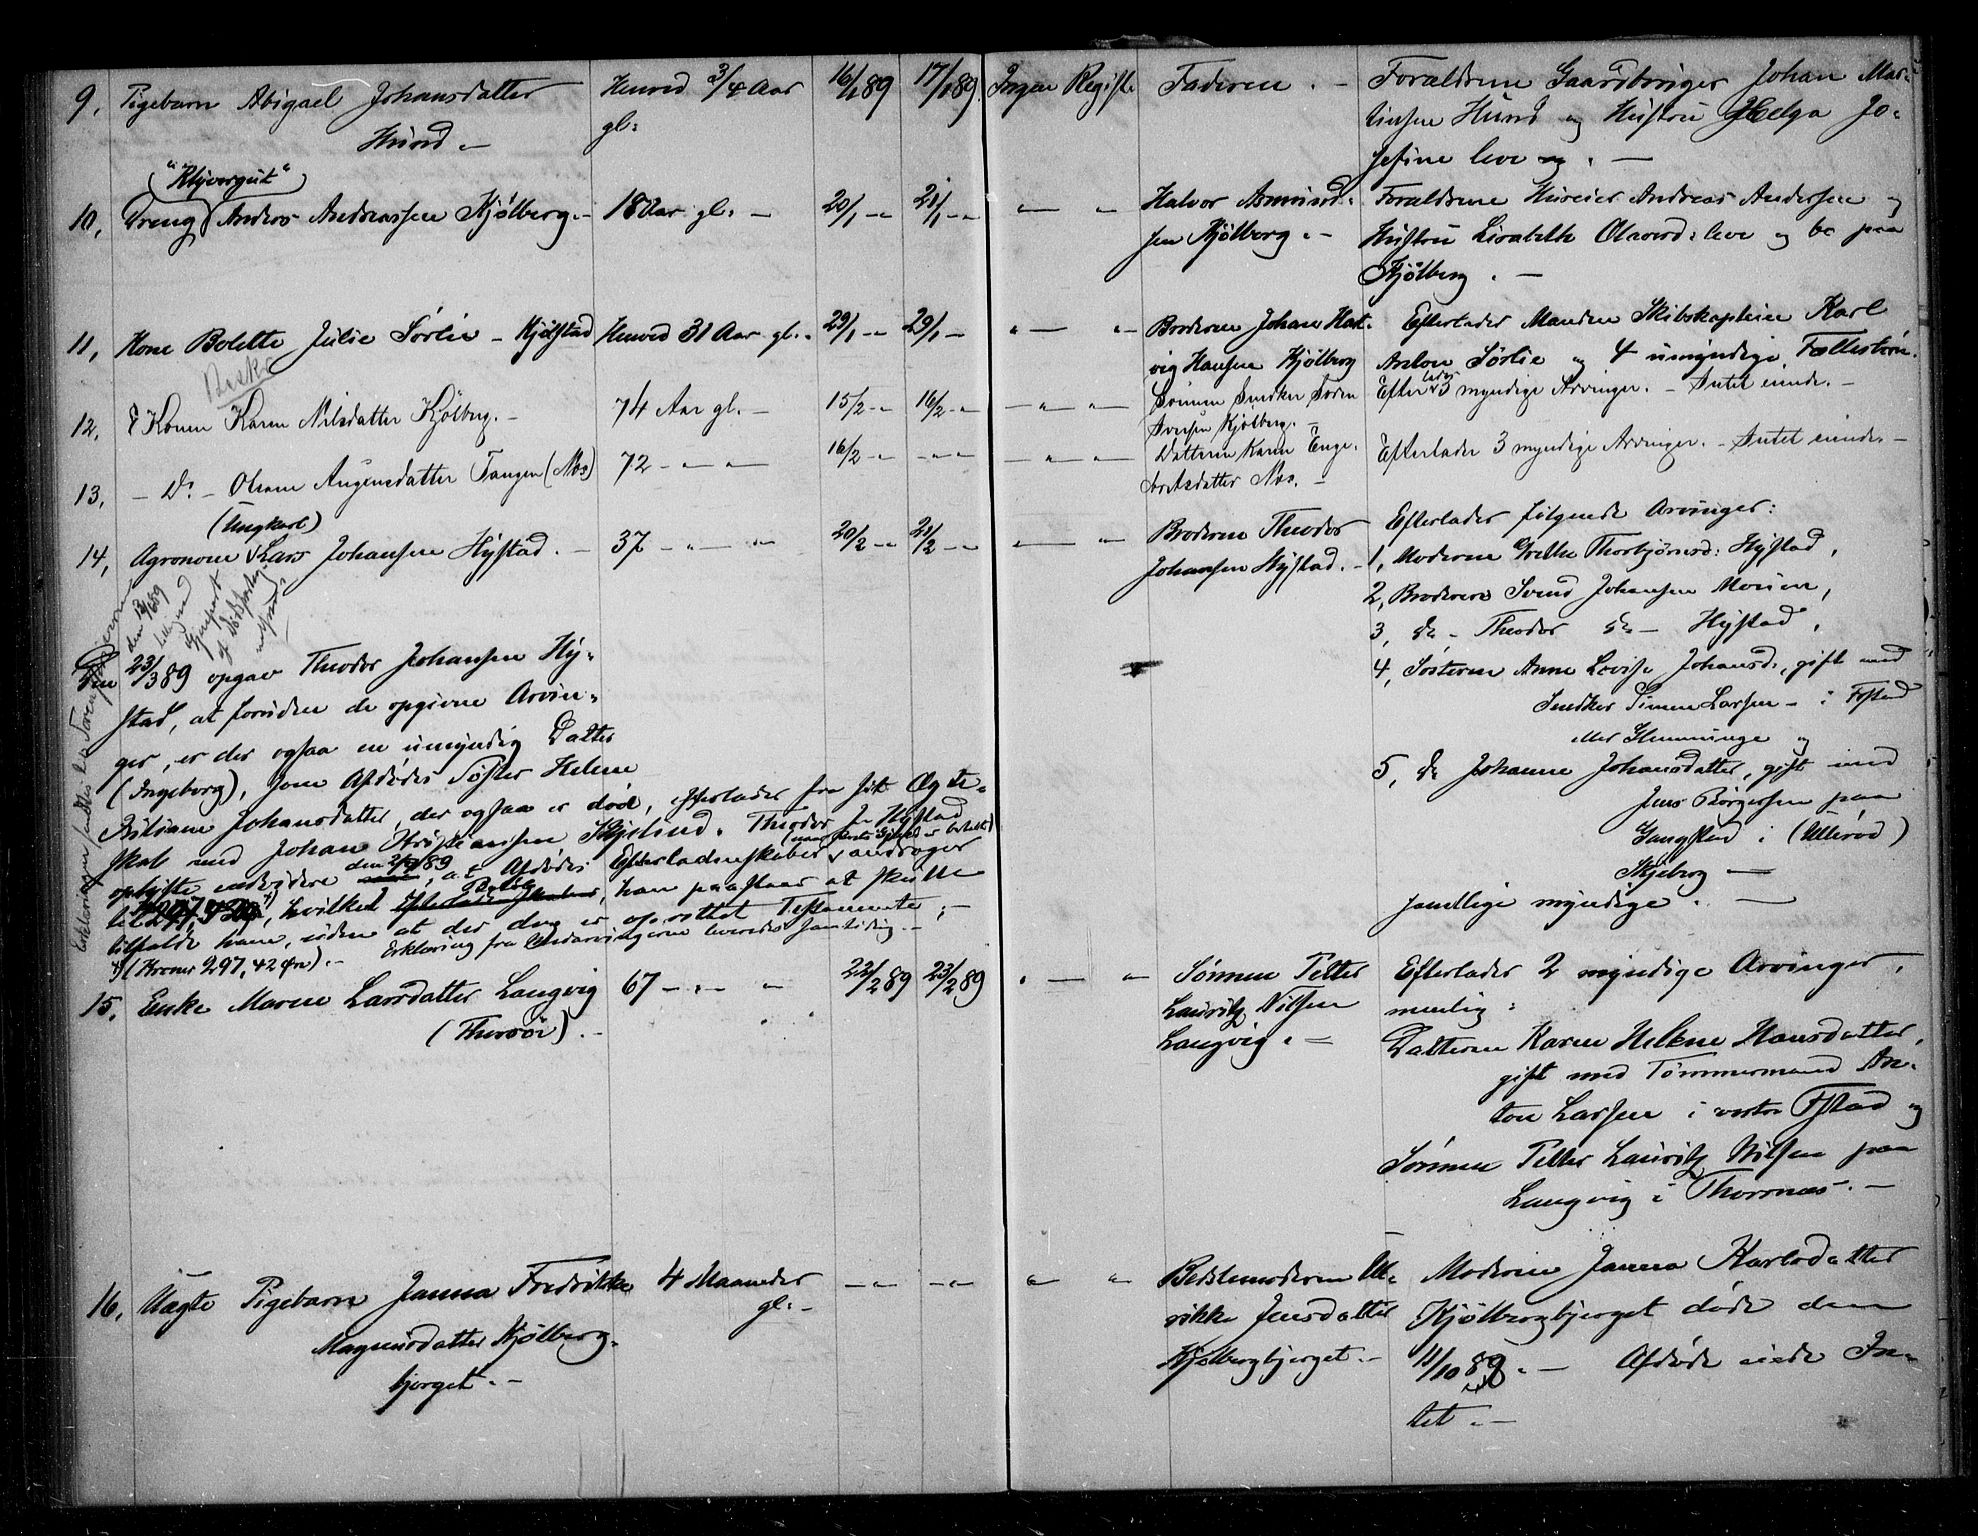 9, Pigebarn Abigael Johansdatter
Hund. –
Henved 3/4 Aar
gl:
16/1 89
17/1 89.
Ingen Regist:
Faderen. –
Forældrene Gaardbruger Johan Mar-
tinsen Hund og Hustru Helga Jo-
sefine leve. –
10, Dreng Anders Andreassen Kjølberg. –
18 Aar gl: –
20/1 –"–
21/1 –"–
" — "
Halvor Asmund-
sen Kjølberg. –
Forældrene Huseier Andreas Andersen og
Hustru Lisabeth Olavesd: leve og bo paa
Kjølberg. –
11, Kone Bolette Julie Sørlie – Kjølstad
Henved 31 Aar gl:
29/1 –"
29/1 –
" — "
Broderen Johan Hart-
vig Hansen Kjølberg
Efterlader Manden Skibskaptein Karl
Anton Sørlie og 4 umyndige Fællesbørn.
12, Konen Karen Nilsdatter Kjølberg. –
74 Aar gl. –
15/2 –"
16/2 –"
— " — "
Sønnen Snedker Søren
Iversen Kjølberg. –
Efterlader 3 myndige Arvinger. – Intet eiende. –
13, – Do – Oleane Augensdatter Tangen (Næs)
72 – " — "
16/2 –"
– " –
— " — "
Datteren Karen Enge-
bretsdatter Næs. –
Efterlader 3 myndige Arvinger. – Intet eiende. –
(Ungkarl)
14, Agronom Lars Johansen Hystad. –
37 – " — "
20/2 –"
21/2 –"
— "
Broderen Theodor
Johansen Hystad. –
Efterlader følgende Arvinger:
1, Moderen Grethe Thorbjørnsd: Hystad,
2, Broderen Svend Johansen Moum,
3, do – Theodor do – Hystad,
4, Søsteren Anne Lovise Johansd:, gift med
Snedker Simen Larsen – i Fstad
eller Glemminge og
5, do Johanne Johansdatter, gift med
Jens Børgersen paa
Gangstad i (Ullerød)
Skjeberg —
samtlige myndige. —
Den 23/3 89 opgav Theodor Johansen Hy-
stad, at foruden de opgivne Arvin-
ger, er der ogsaa en umyndig Datter
(Ingeborg), som Afdødes Søster Helene
Johansdatter, der ogsaa er død, efterlader fra sit Ægte-
skab med Johan Kristiansen Skjelind. Theodor J. Hystad
oplyste endvidere den 89, at Afdødes Efterladenskaber andrager
til, hvilket Beløb, han paastaar at skulle
tilfalde ham, uden at der dog er oprettet Testamente; –
(Kroner 297,42 Øre). – Erklæring fra Medarvingerne leveredes samtidig. –
15, Enke Maren Larsdatter Langvig
(Thorsø). –
67 – " – "
22/2 89
23/2 89
" — "
Sønnen Petter
Lauritz Nilsen
Langvig. –
Efterlader 2 myndige Arvinger,
nemlig:
Datteren Karen Helene Hansdatter,
gift med Tømmermand An-
ton Larsen i vestre Fstad og
Sønnen Petter Lauritz Nilsen paa
Langvig i Thorsnæs. –
16, Uægte Pigebarn Janna Fredrikke
Magnusdatter Kjølberg-
bjerget. –
4 Maaneder
gl: –
–"–
–"–
" "
Bedstemoderen Ul-
rikke Jensdatter
Kjølbergbjerget. –
Moderen Janna Karlsdatter
Kjølbergbjerget døde den
11/10 89. – Afdøde eiede In-
tet. –